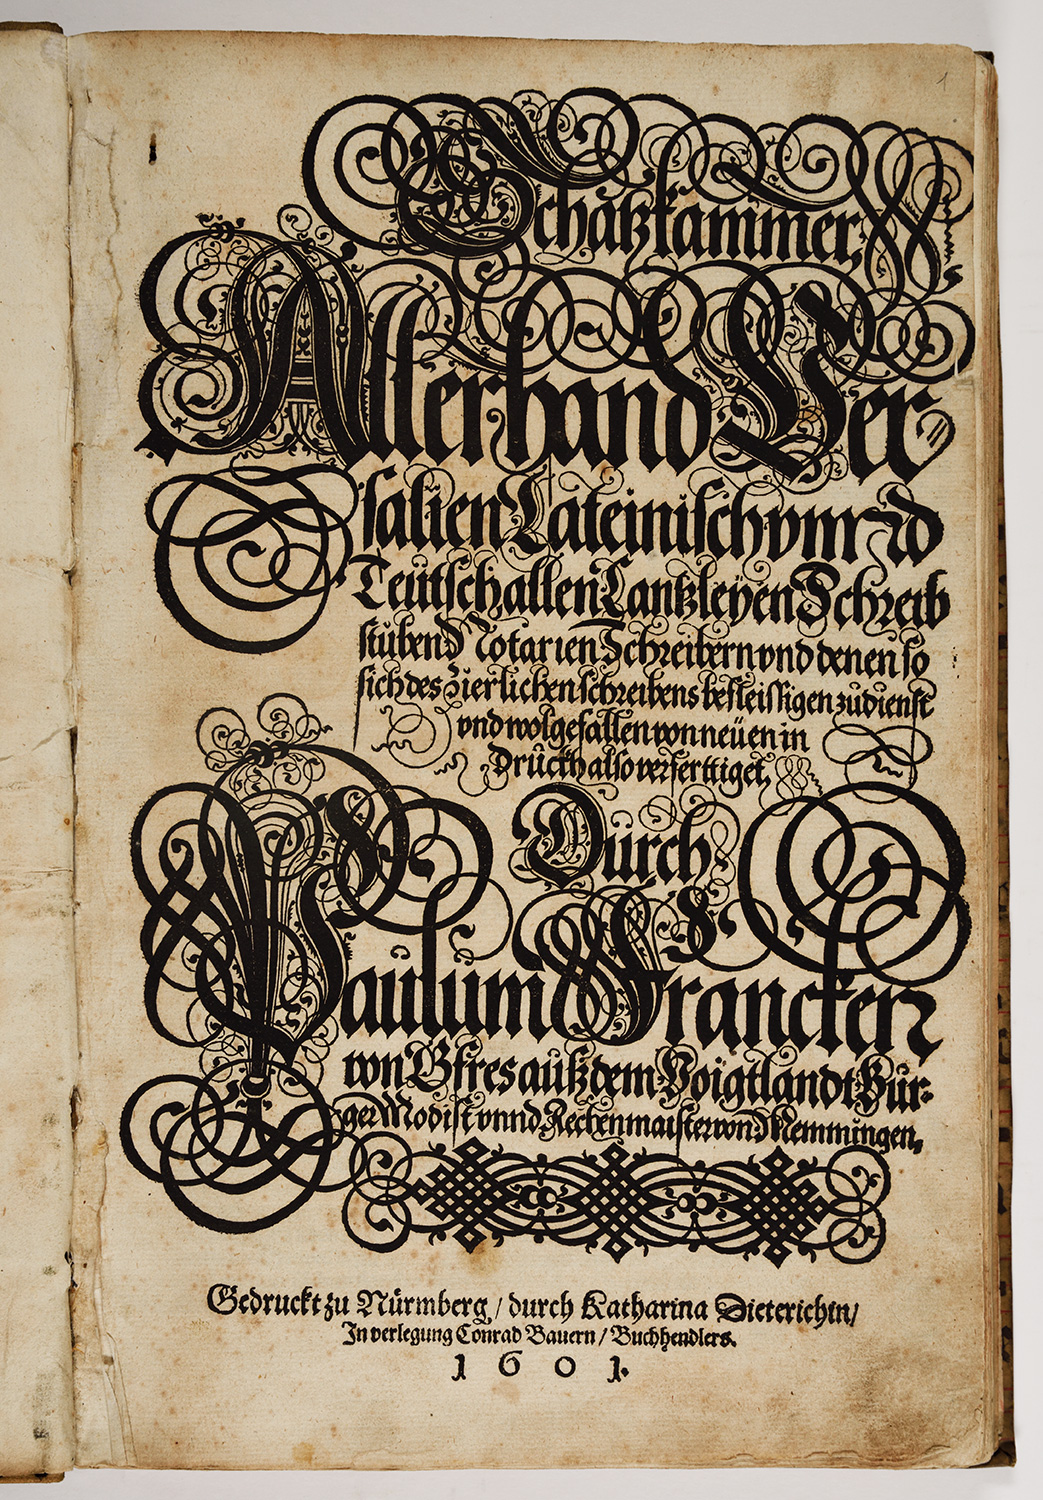 1
Schatzkammer,
Allerhand Ver⸗
salien Lateinisch vnnd
Teütsch allen Cantzleyen Schreib
stüben Notarien Schreibern vnd denen so
sich des zierlichen schreibens befleissigen zü dienst
vnd wolgefallen von neüen in
Drückh also verferttiget,
Dürch
Paülüm Francken
von Gfres aüß dem Voigtlandt Bür⸗
ger Modist vnnd Rechenmaister von Memmingen,
Gedruckt zu Nürmberg / durch Katharina Dieterichin /
In verlegung Conrad Bauern / Buchhendlers.
1601.